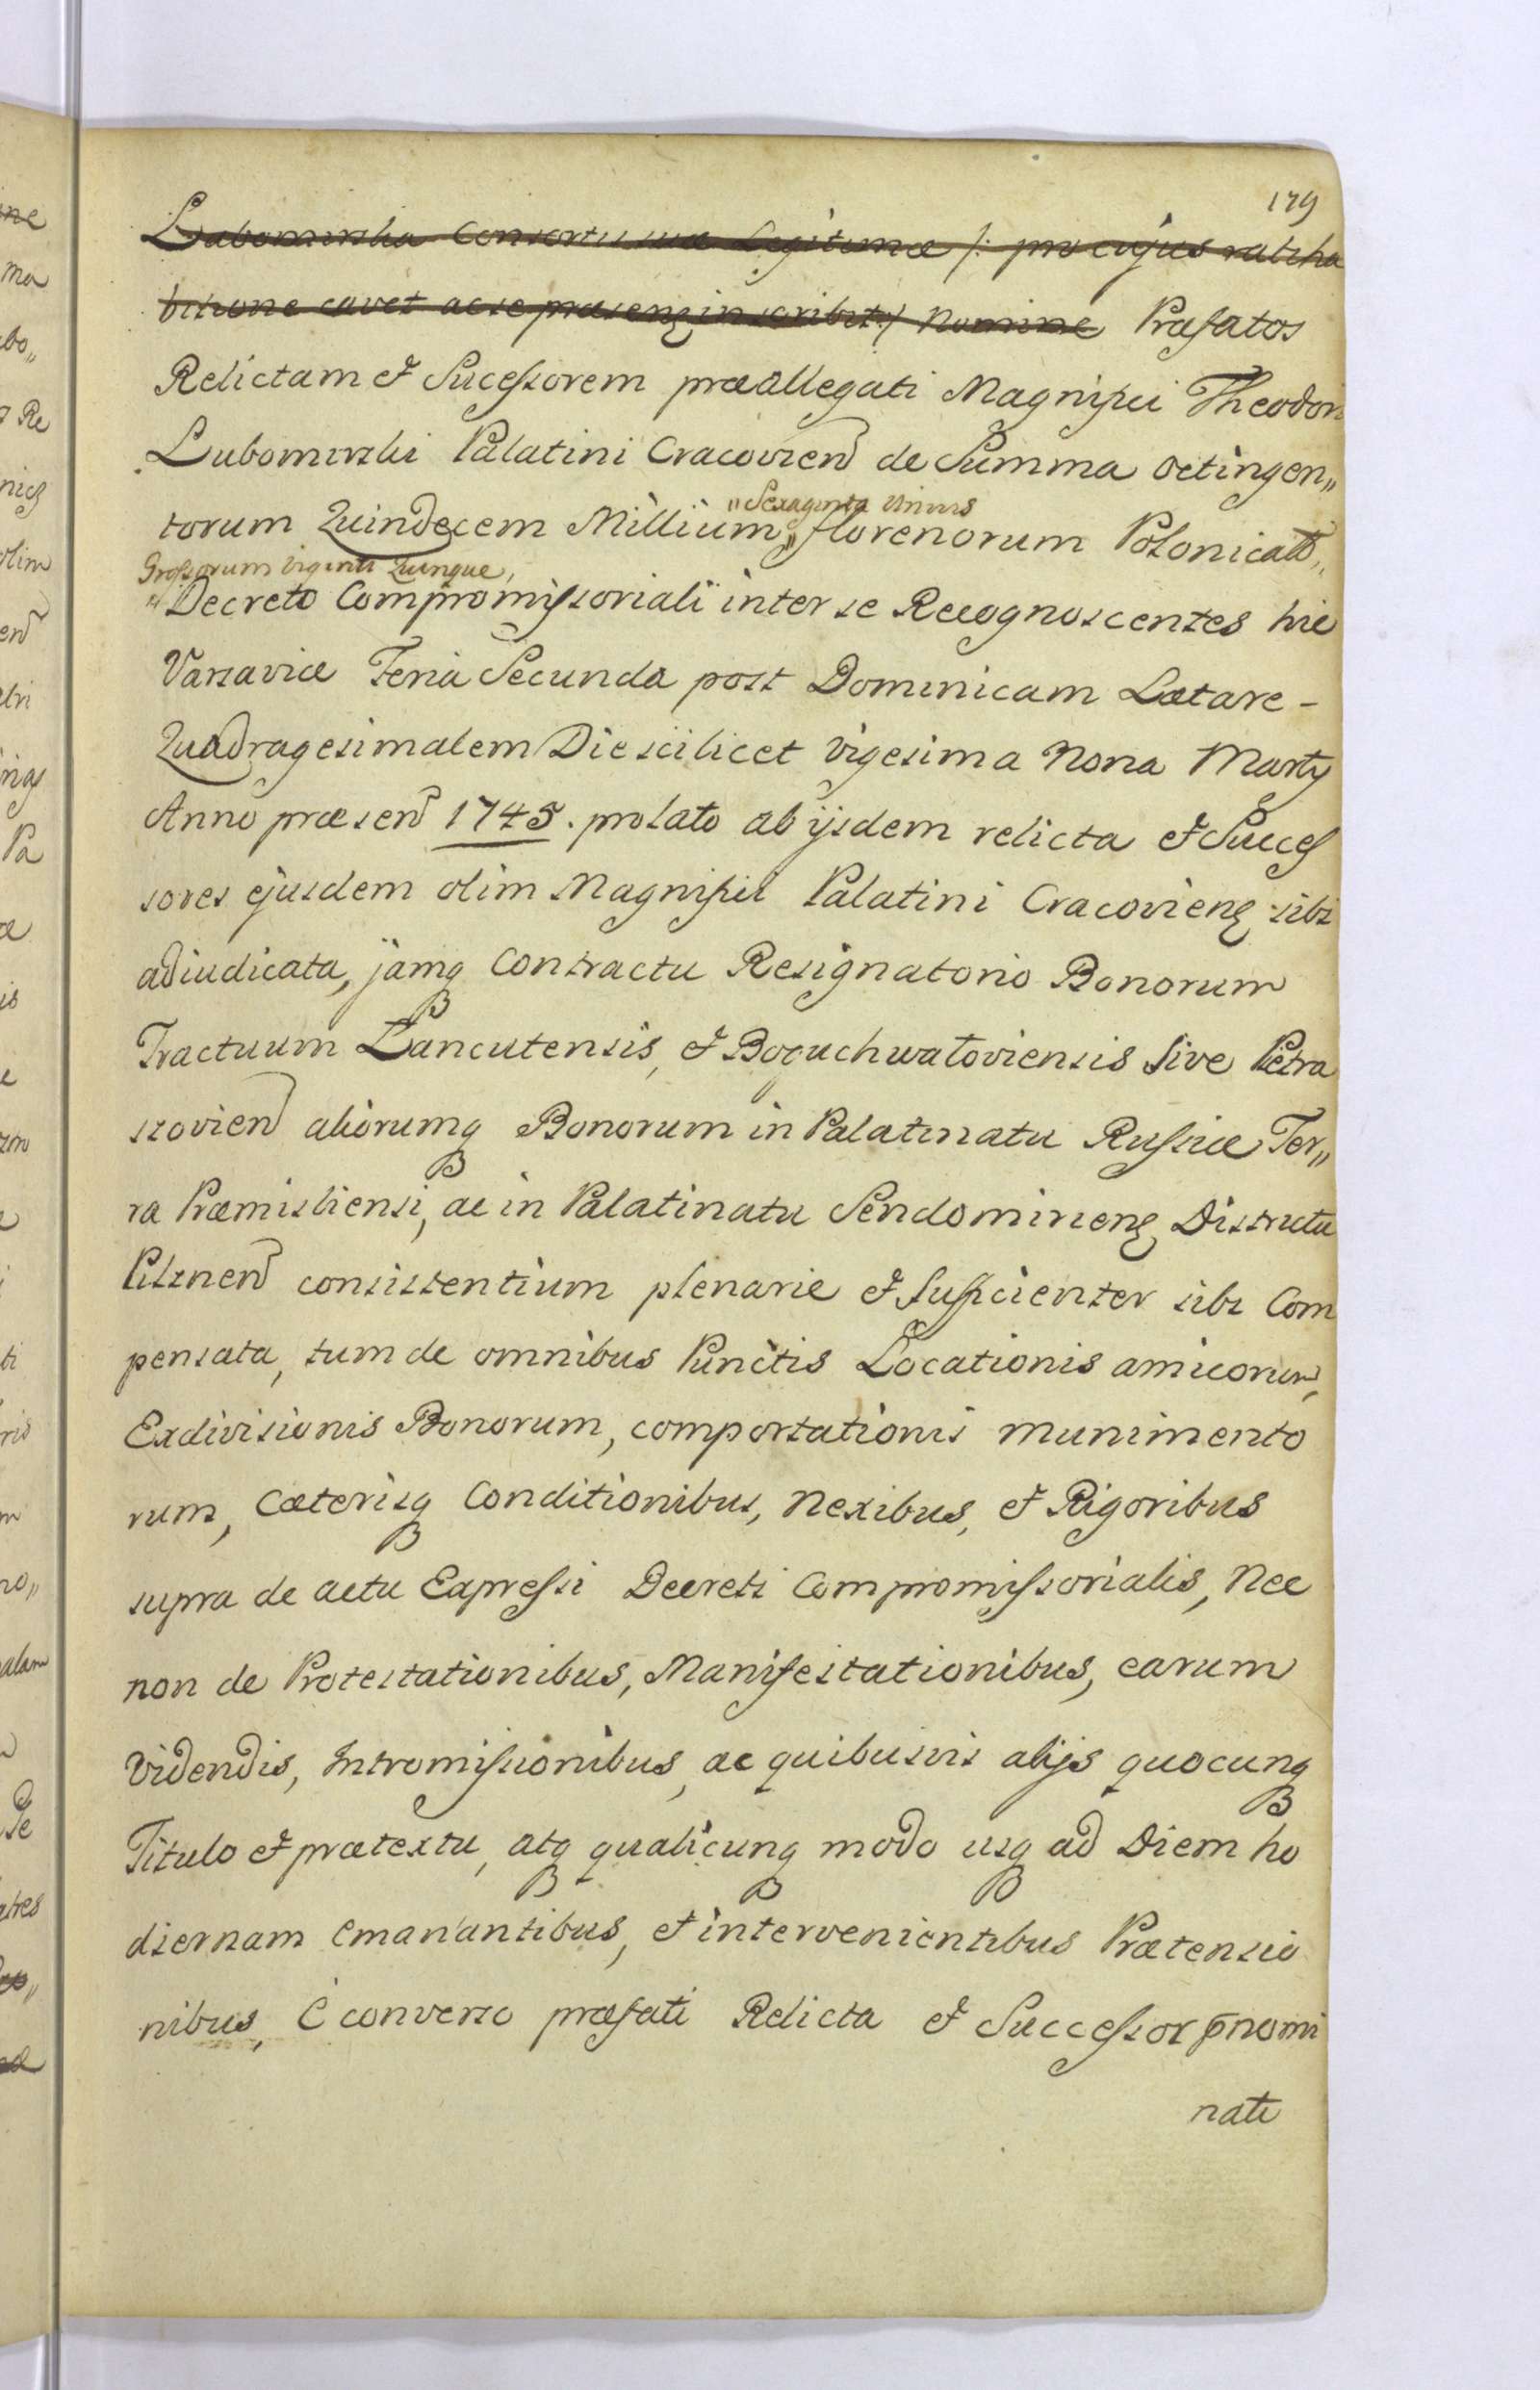 179
Lubomirska Consortis suæ Legitimæ /: pro cujus ratiha
bitione cavet ac se præsenę inscribit :/ Nomine Præfatos
Relictam et Sucessorem præallegati Magnifici Theodori
Lubomirski Palatini Cracovien de Summa octingen„
„Sexaginta Unius
torum Quindecem Millium„ florenorum Polonicał„
Grossorum Viginti Quinque,
„Decreto Compromissoriali inter se Recognoscentes hic
Varsaviæ Feria Secunda post Dominicam Lætare -
Quadragesimalem Die scilicet Vigesima Nona Martij
Anno præsen 1745. prolato ab ijsdem relicta et Succes
sores ejusdem olim Magnifici Palatini Cracovienę sibi
adiudicata, jamq Contractu Resignatorio Bonorum
Tractuum Łancutensis, et Boguchwałoviensis Sive Pietra
szovien aliorumq Bonorum in Palatinatu Russiæ Ter„
ra Præmisliensi, ac in Palatinatu Sendomirienę Districtu
Pilznen consistentium plenarie et sufficienter sibi Com
pensata, tum de omnibus Punctis Locationis amicorum,
Exdivisionis Bonorum, comportationis munimento
rum, Cæterisq Conditionibus, Nexibus, et Rigoribus
supra de actu Expressi Decreti Compromissorialis, Nec
non de Protestationibus, Manifestationibus, earum
Videndis, Intromissionibus, ac quibusvis alijs quocunq
Titulo et prætextu, atq qualicunq modo usq ad Diem ho
diernam emanantibus, et intervenientibus Prætensio
nibus, è converso præfati Relicta et Successor p̄nomi
nati